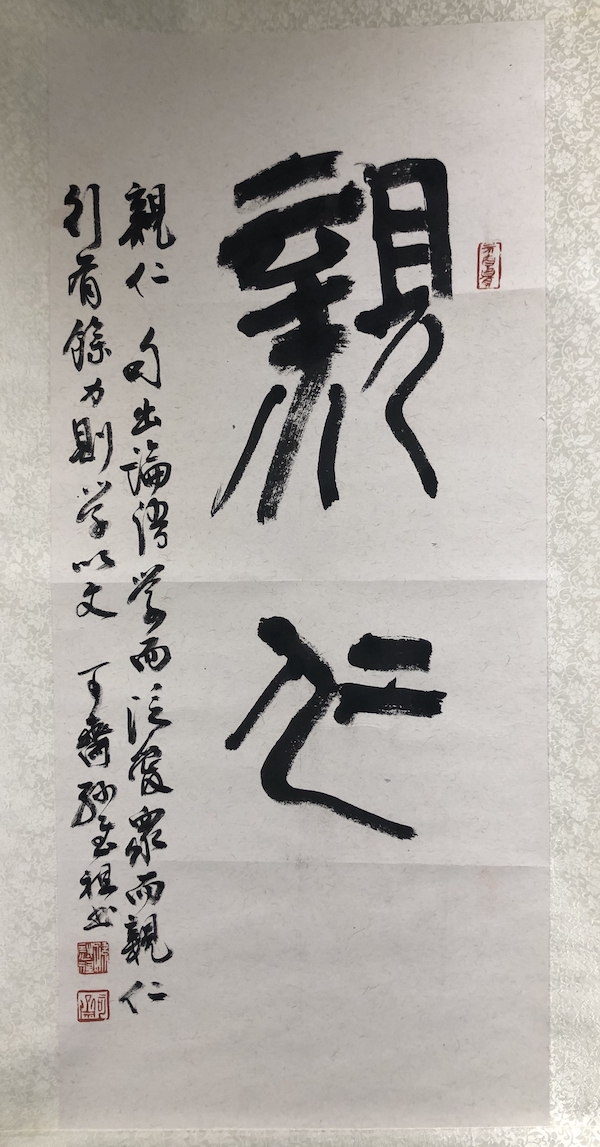 親仁
親仁 句出論語學而泛愛衆而親仁
行有餘力則學以文 可齋孫慰祖書